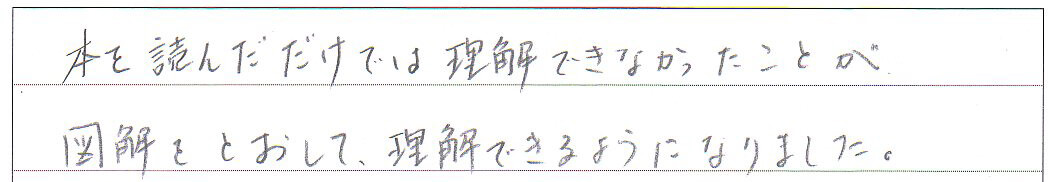 本を読んだだけでは理解できなかったことが
図解をとおして、理解できるようになりました。